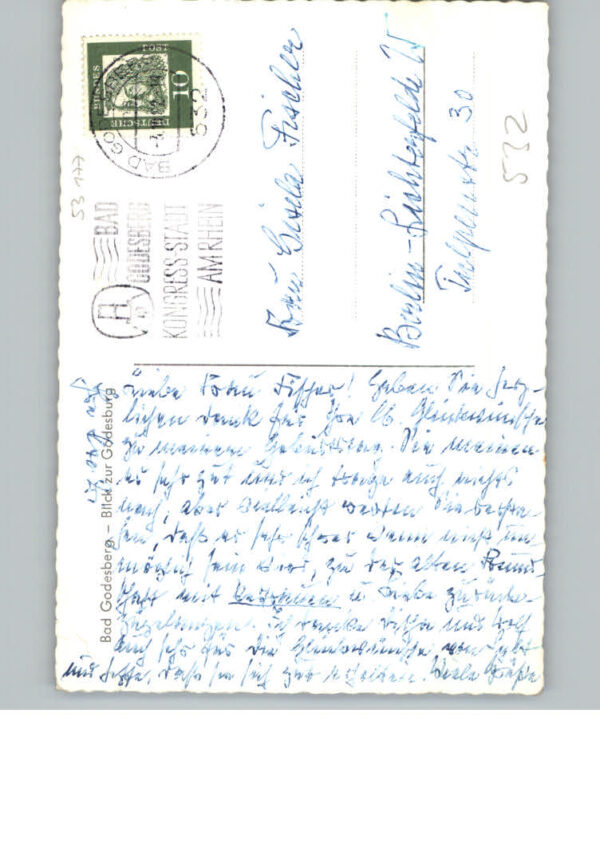 DEUTSCHE
BUNDES
10
BAD GO
532
BAD
GODESBERG
KONGRESS-STADT
AM RHEIN
53 177
Frau Gisela Fischer
Berlin-Lichterfelde W
Tulpenstr. 30
532
Bad Godesberg – Blick zur Godesburg
Liebe Frau Fischer! Haben Sie herz-
lichen Dank für Ihre lb. Glückwünsche
zu meinem Geburtstag. Sie meinen
es sehr gut und ich trage auch nichts
nach, aber vielleicht werden Sie verste-
hen, daß es sehr schwer wenn nicht un-
möglich sein wird, zu der alten Freund-
schaft mit Vertrauen u. Liebe zurück-
zugelangen. Ich danke und
auch sehr für die Glückwünsche
und hoffe, daß sie sich gut erholten. Viele Grüße